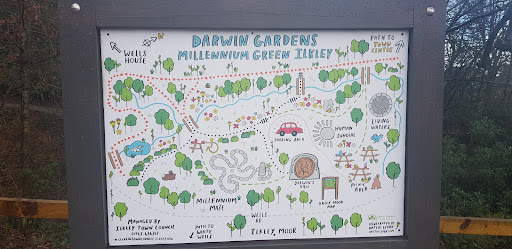 DARWIN GARDENS
MILLENNIUM GREEN ILKLEY
WELLS
HOUSE
PATH TO
TOWN
CENTRE
LIVING
WATERS
HUMAN
SUNDIAL
PARKING AREA
DARWIN'S
PICNIC
AREA
ILKLEY MOOR
MILLENNIUM
MAZE
WELLS
RD
PATH TO
WHITE
WELLS
ILKLEY MOOR
MANAGED BY
ILKLEY TOWN COUNCIL
ILLUSTRATED BY